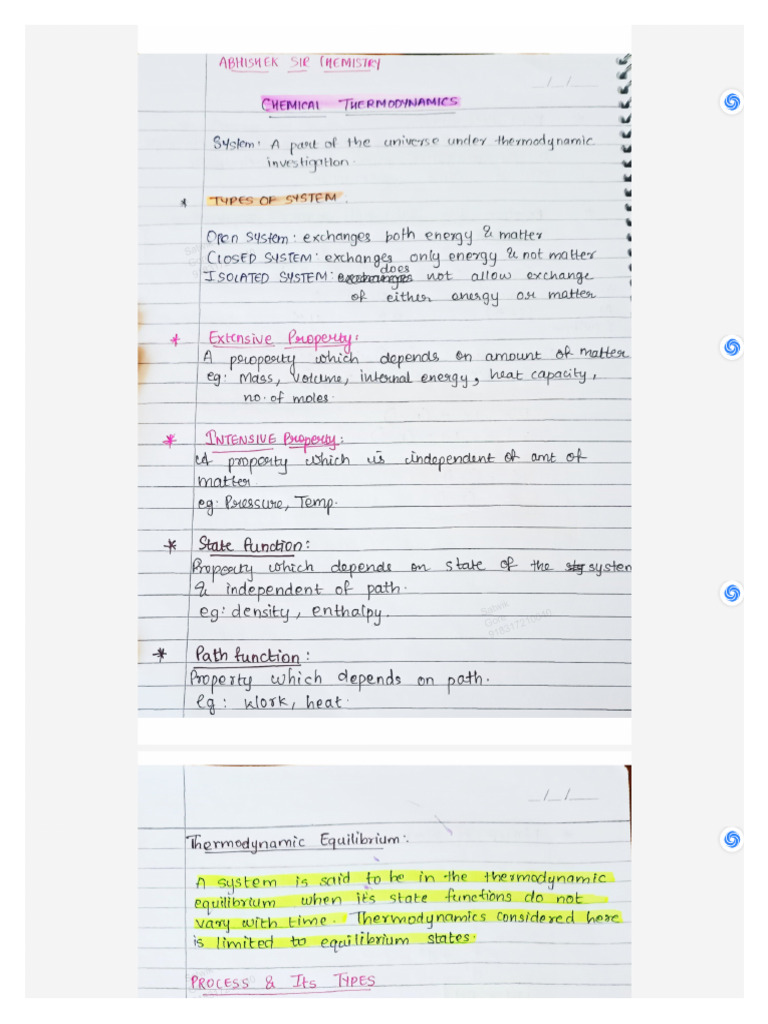 ABHISHEK SIR CHEMISTRY
__/__/__
CHEMICAL THERMODYNAMICS
System: A part of the universe under thermodynamic
investigation.
* TYPES OF SYSTEM.
Open System: exchanges both energy & matter
CLOSED SYSTEM: exchanges only energy & not matter
ISOLATED SYSTEM: does not allow exchange
of either energy or matter
* Extensive Property:
A property which depends on amount of matter
eg: Mass, Volume, internal energy, heat capacity,
no. of moles.
* INTENSIVE Property:
A property which is independent of amt of
matter
eg: Pressure, Temp.
* State function:
Property which depends on state of the system
& independent of path.
eg: density, enthalpy.
* Path function:
Property which depends on path.
eg: Work, heat.
__/__/__
Thermodynamic Equilibrium:
A system is said to be in the thermodynamic
equilibrium when it's state functions do not
vary with time. Thermodynamics considered here
is limited to equilibrium states.
PROCESS & ITS TYPES